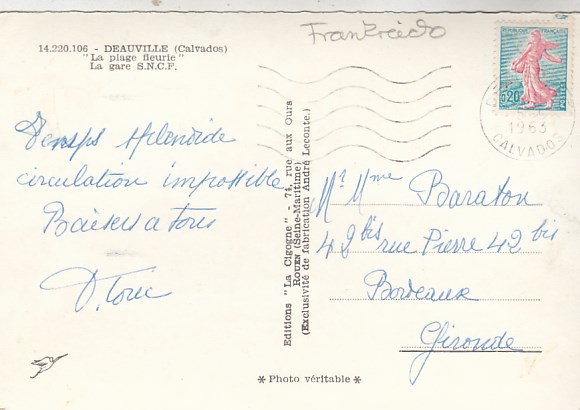 Frankreich
14.220.106 - DEAUVILLE (Calvados)
"La plage fleurie"
La gare S.N.C.F.
Temps splendide
circulation impossible
Baisers a tous
REPUBLIQUE FRANÇAISE
0,20
POSTES
1963
CALVADOS
Mr Mme Baraton
42 bis rue Pierre 42 bis
Bordeaux
Gironde
Editions "La Cigogne" - 74, rue aux Ours
ROUEN (Seine-Maritime)
(Exclusivité de fabrication André Leconte.)
* Photo véritable *